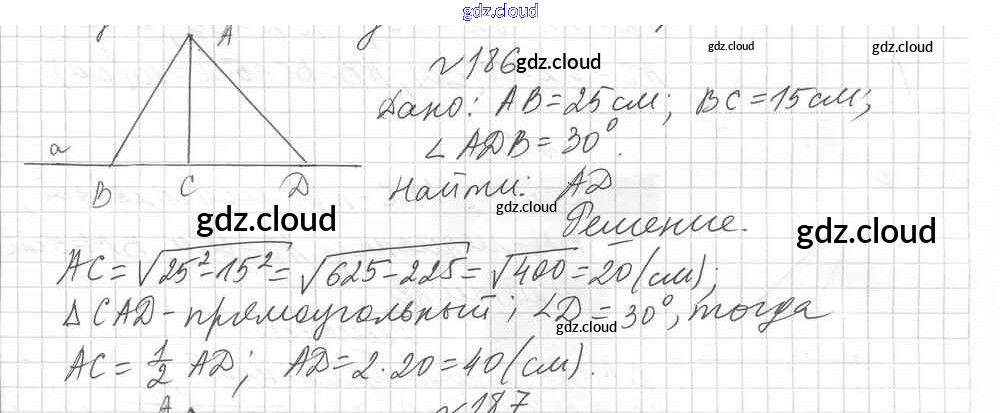 gdz.cloud
A
a
B C D
№186
gdz.cloud
gdz.cloud
gdz.cloud
Дано: AB=25см; BC=15см;
∠ADB=30°.
Найти: AD
gdz.cloud
Решение.
gdz.cloud
gdz.cloud
AC=√25²-15²=√625-225=√400=20(см);
△CAD-прямоугольный; ∠D=30°, тогда
gdz.cloud
AC=1/2 AD; AD=2·20=40(см).
A
№187